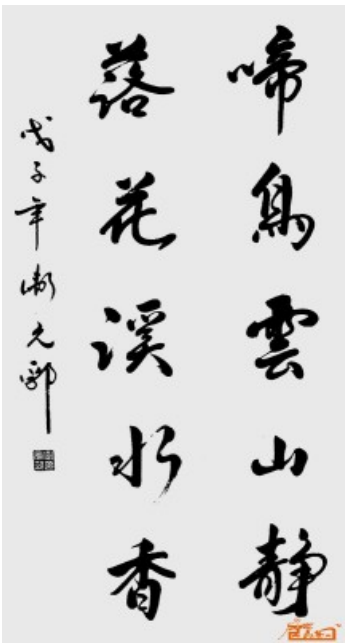 啼鳥雲山静
落花溪水香
戊子年